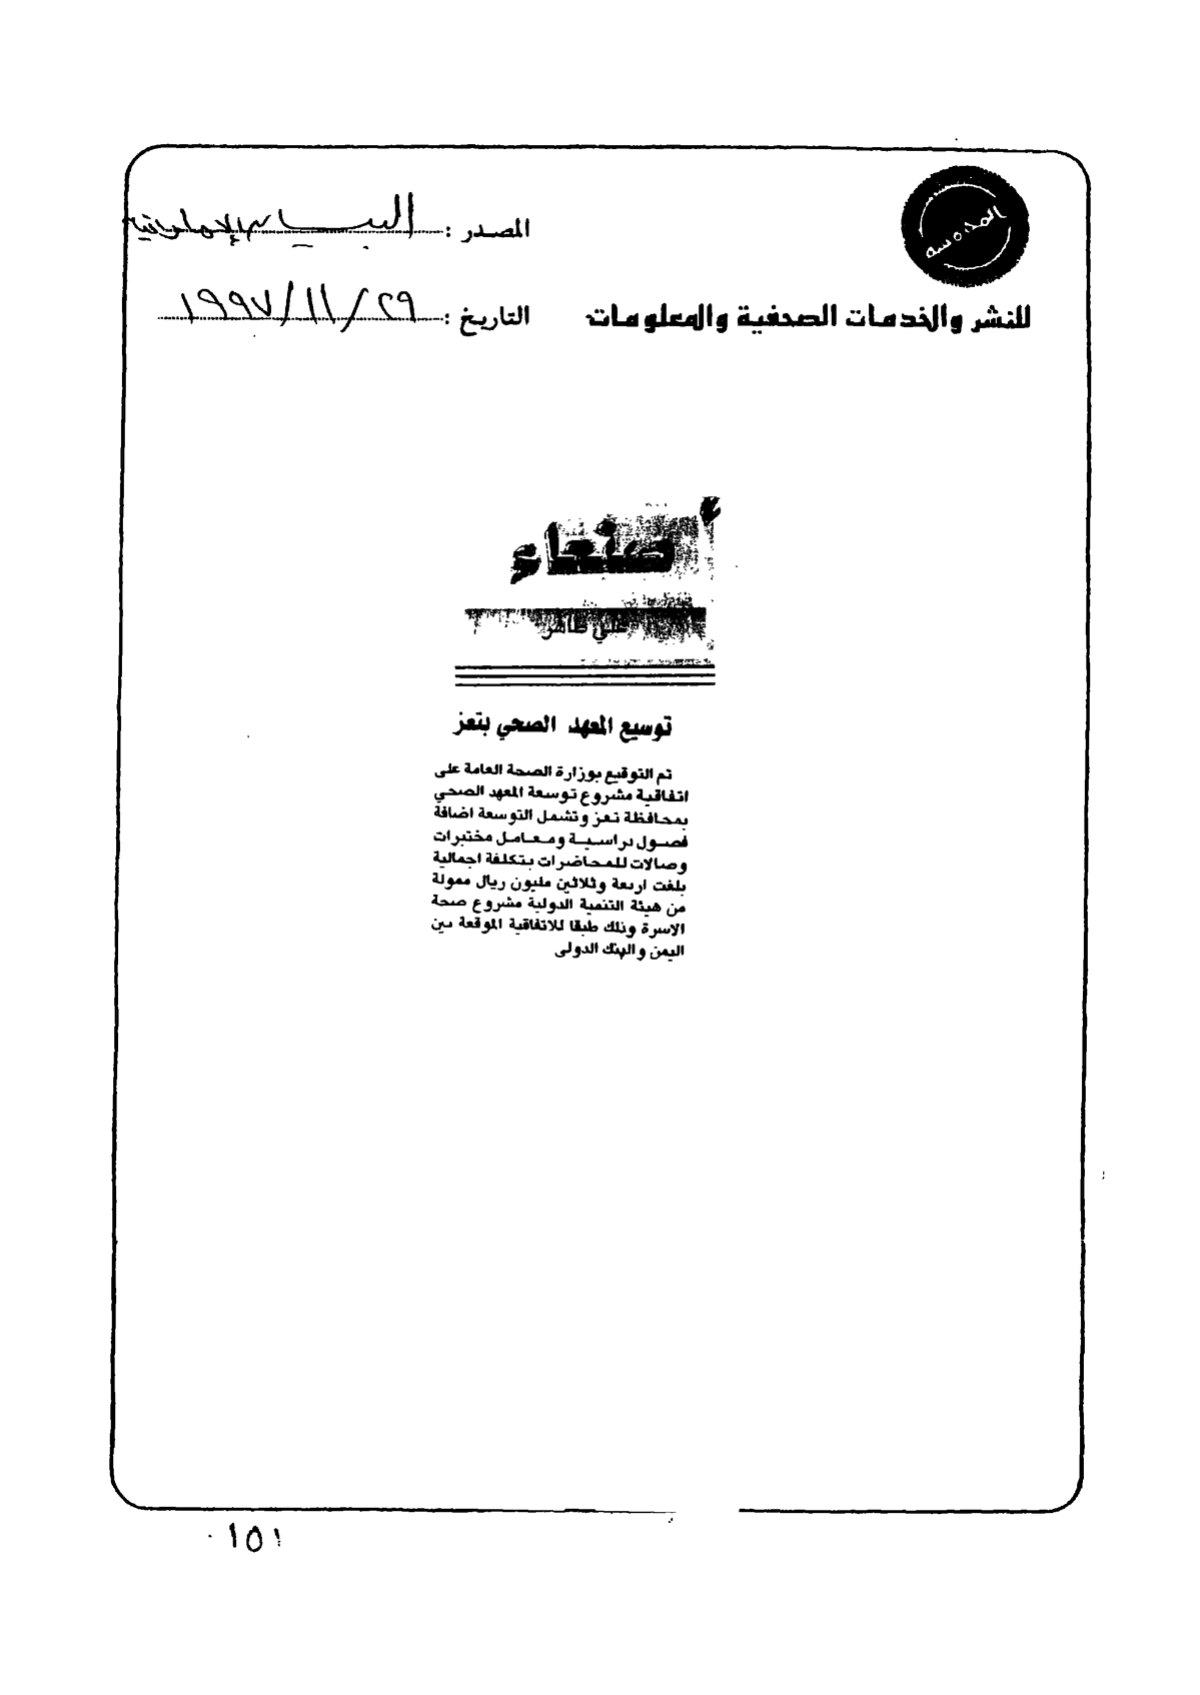 المدوسه
المصدر : البيان الإماراتية
للنشر والخدمات الصحفية والمعلومات
التاريخ : ٢٩/١١/١٩٩٧
صنعاء
علي طاهر
توسيع المعهد الصحي بتعز
تم التوقيع بوزارة الصحة العامة على
اتفاقية مشروع توسعة المعهد الصحي
بمحافظة تعز وتشمل التوسعة اضافة
فصول دراسية ومعامل مختبرات
وصالات للمحاضرات بتكلفة اجمالية
بلغت اربعة وثلاثين مليون ريال ممولة
من هيئة التنمية الدولية مشروع صحة
الاسرة وذلك طبقا للاتفاقية الموقعة بين
اليمن والبنك الدولى
١٥١